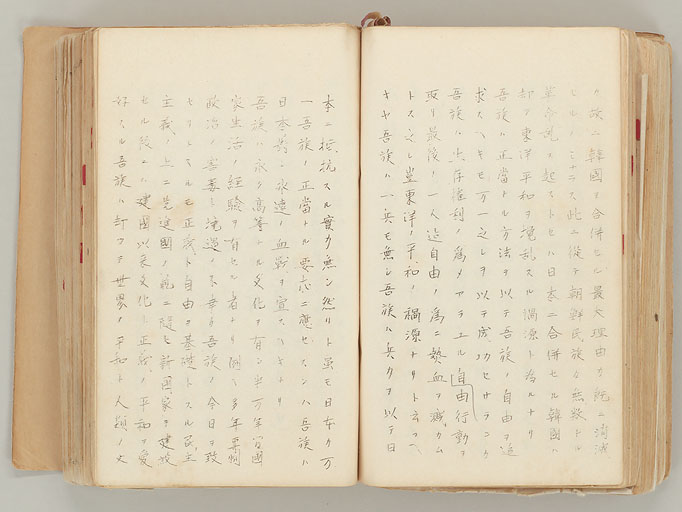 カ故ニ韓國ヲ合併セル最大理由カ既ニ消滅
セルノミナラス此ニ從テ朝鮮民族カ無數ナル
革命乱ヲ起ストセハ日本ニ合併セル韓國ハ
却ツテ東洋平和ヲ攪乱スル禍源ト為ルナリ
吾族ハ正當ナル方法ヲ以テ吾族ノ自由ヲ追
求スヘキモ万一之レヲ以テ成功セサランカ
吾族ハ生存権利ノ為メアラユル自由行動ヲ
取リ最後ノ一人迠自由ノ為ニ熱血ヲ濺カム
トス之レ豈東洋ノ平和ノ禍源ナリト云フヘ
キヤ吾族ハ一兵モ無シ吾族ハ兵力ヲ以テ日
本ニ抵抗スル實力無シ然リト虽モ日本カ万
一吾族ノ正當ナル要求ニ應セスンハ吾族ハ
日本ニ對シ永遠ノ血戰ヲ宣スヘキナリ
吾族ハ永久高等ナル文化ヲ有シ半万年間國
家生活ノ經驗ヲ有セル者ナリ例ヘ多年専制
政治ノ害毒ト境遇ノ不幸カ吾族ノ今日ヲ致
セリトスルモ正義ト自由ヲ基礎トスル民主
主義ノ上ニ先進國ノ範ニ隨ヒ新國家ヲ建設
セル後ニハ建國以来文化ト正義ト平和ヲ愛
好スル吾族ハ世界ノ平和ト人類ノ文